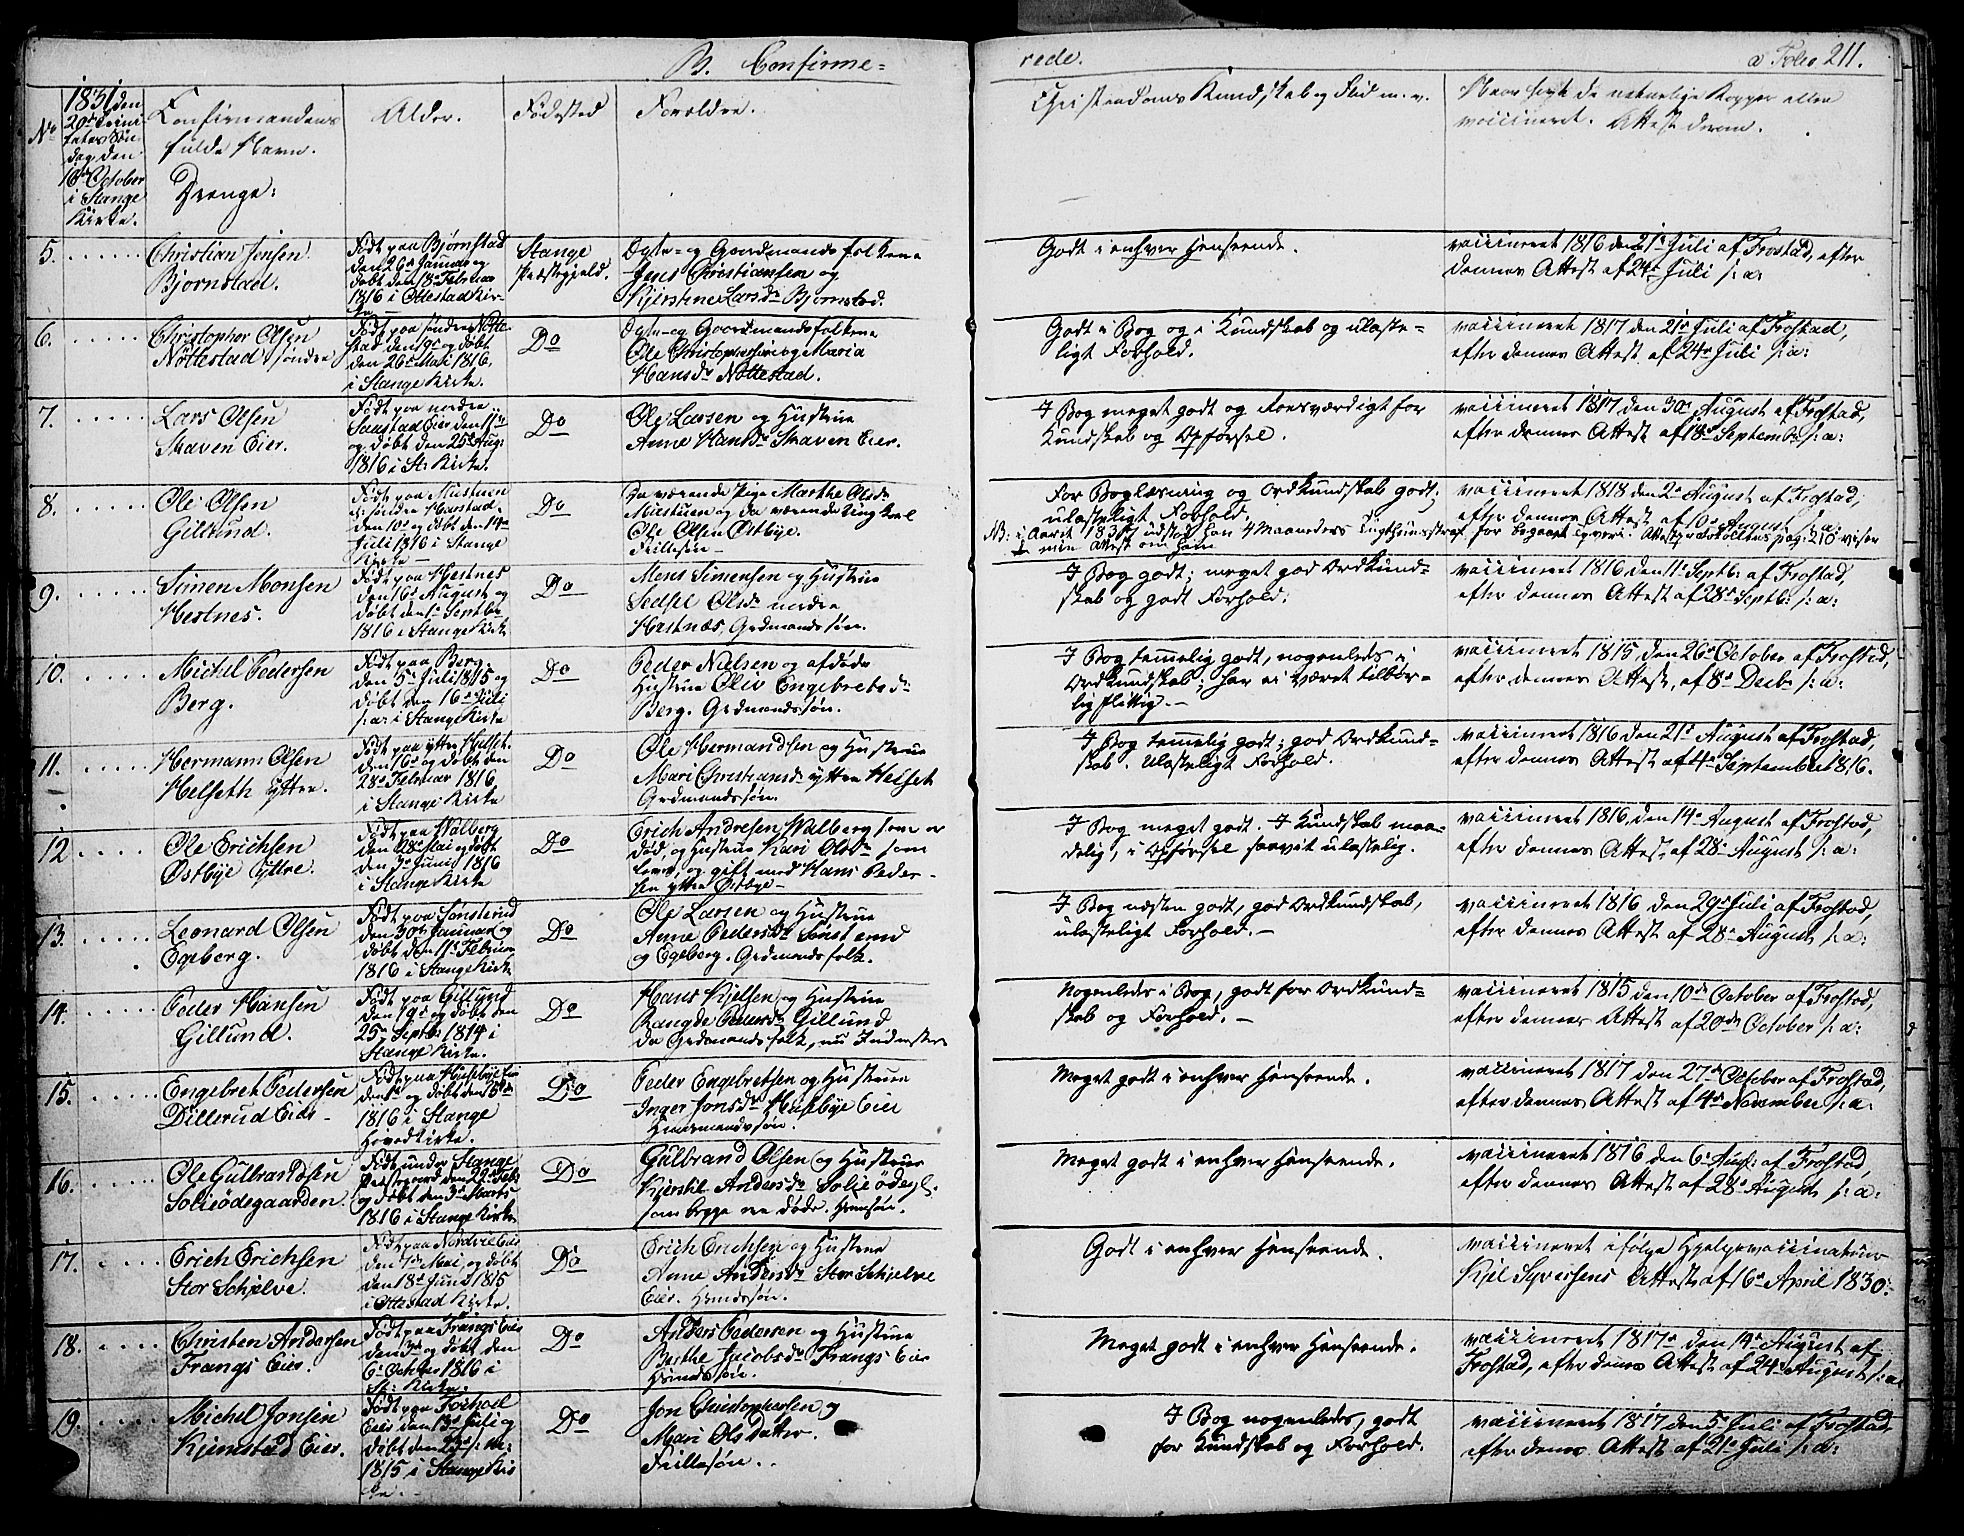 B. Confirme=
rede.
a Folio 211.
No
1831 den
20de Trini-
tatis Søn-
dag den
16de October
i Stange
Kirke.
Confirmandens
fulde Navn.
Drenge:
Alder.
Fødested
Forældre.
Christendoms Kundskab og Flid m. v.
Naar havt de naturlige Kopper eller
vaccineret. Attest derom.
5.
Christian Jensen
Bjørnstad.
Født paa Bjørnstad
den 26de Januar og
døbt den 18de Februar
1816 i Ottestad Kir-
ke
Stange
Præstegjeld.
og Gaardmandsfolkene
Jens Christiansen og
Kjerstine Larsdr Bjørnstad.
Godt i enhver Henseende.
vaccineret 1816 den 21de Juli af Frostad, efter
dennes Attest af 24de Juli s: a:
6.
Christopher Olsen
Nøttestad søndre
Født paa søndre Nøtte-
stad den 9de og døbt
den 26de Mai 1816,
i Stange Kirke.
Do
og Gaardmandsfolkene
Ole Christophersen og Maria
Hansdr Nøttestad.
Godt i Bog og i Kundskab og ulaste=
ligt Forhold.
vaccineret 1817 den 21de Juli af Frostad,
efter dennes Attest af 24de Juli s: a:
7.
Lars Olsen
Skaven Eier.
Født paa nordre
Saastad Eier den 11te
og døbt den 25de Aug:
1816 i St: Kirke.
Do
Ole Larsen og Hustrue
Anne Hansdr Skaven Eier.
I Bog meget godt og Roesværdigt for
Kundskab og Opførsel.
vaccineret 1817 den 30de August af Frostad,
efter dennes Attest af 18de Septembr s: a:
8.
Ole Olsen
Gillund.
Født paa Mustuen
søndre Harstad
den 10de og døbt den 14de
Juli 1816 i Stange
Kirke
Do
Da værende Pige Marthe Olsdr
Mustuen og da værende Ungkarl
Ole Olsen Østbye.
Frillesøn
For Boglæsning og Ordkundskab godt;
ulasteligt Forhold.
NB: i Aaret 1837 udstod han 4 Maaneders Tugthuusstraf for begaaet Tyveri. Attestprotocollens pag: 210 viser
min Attest om ham
vaccineret 1818 den 2de August af Frostad,
efter dennes Attest af 10de August s: a:
9.
Simen Monsen
Hestnes.
Født paa Hestnes
den 16de August og
døbt den 1ste Septbr
1816 i Stange Kirke
Do
Mons Simensen og Hustrue
Sedsel Olsdr nordre
Hestnæs, Grdmandssøn.
I Bog godt; meget god Ordkund=
skab og godt Forhold.
vaccineret 1816 den 11te Septb: af Frostad,
efter dennes Attest af 28de Septb: s: a:
10.
Michel Pedersen
Berg.
Født paa Berg
den 5te Juli 1815 og
døbt den 16de Juli
s: a: i Stange Kirke
Do
Peder Nielsen og afdøde
Hustrue Oliv Engebretsdr
Berg. Grdmandssøn.
I Bog temmelig godt, nogenledes i
Ordkundskab; har ei været tilbør-
lig flittig.
vaccineret 1815, den 26de October af Frostad,
efter dennes Attest, af 8de Decbr s: a:
11.
Hermann Olsen
Helseth yttre.
Født paa yttre Helset
den 16de og døbt den
28de Februar 1816
i Stange Kirke
Do
Ole Hermandsen og Hustrue
Mari Christiansdr yttre Helset
Grdmandssøn.
I Bog temmelig godt; god Ordkund=
skab. Ulasteligt Forhold.
vaccineret 1816 den 21de August af Frostad,
efter dennes Attest af 4de September 1816.
12
Ole Erichsen
Østbye yttre.
Født paa Walberg
den 28de Mai og døbt
den 3die Junii 1816
i Stange Kirke
Do
Erich Andresen Walberg som er
død, og Hustrue Kari Olsdr som
lever, og gift med Hans Peder-
sen yttre Østbye
I Bog meget godt. I Kundskab maa-
delig, i Opførsel saavit ulastelig.
vaccineret 1816, den 14de August af Frostad,
efter dennes Attest, af 28de August s: a:
13.
Leonard Olsen
Egeberg.
Født paa Sønsterud
den 30te Januar og
døbt den 11te Februar
1816 i Stange Kirke
Do
Ole Larsen og Hustrue
Anne Pedersdr Sønsterud
og Egeberg. Grdmandsfolk.
I Bog næsten godt, god Ordkundskab,
ulasteligt Forhold.
vaccineret 1816 den 29de Juli af Frostad,
efter dennes Attest af 28de August s: a:
14.
Peder Hansen
Gillund.
Født paa Gillund
den 19de og døbt den
25de Septbr 1814 i
Stange Kirke.
Do
Hans Kjelsen og Hustrue
Rangde Pedersdr Gillund
da Grdmandsfolk, nu Inderster
Nogenledes i Bog, godt for Ordkund=
skab og Forhold.
vaccineret 1815 den 10de October af Frostad,
efter dennes Attest af 20de October s: a:
15.
Engebret Pedersen
Dillerud Eier
Født paa Husebye Eier
den og døbt den
1816 i Stange
Hoved Kirke.
Do
Peder Engebretsen og Hustrue
Inger Jonsdr Husebye Eier
Huusmandssøn.
Meget godt i enhver Henseende.
vaccineret 1817 den 27de October af Frostad,
efter dennes Attest af 4de November s: a:
16.
Ole Gulbrandsen
Solieødegaarden.
Født under Stange
Præstegaard den 29de Feb:
og døbt den 3die Marts
1816 i Stange Kirke
Do
Gulbrand Olsen og Hustrue
Kjersti Andersdr Solieødegd.
som begge ere døde. Hmdssøn.
Meget godt i enhver Henseende.
vaccineret 1816 den 6te Aug: af Frostad,
efter dennes Attest af 28de August s: a:
17.
Erich Erichsen
Stor Schjelve.
Født paa Nordvie Eier
den 7de Mai, og døbt
den 18de Junii 1815
i Ottestad Kirke.
Do
Erich Erichsen og Hustrue
Anne Andersdr Stor Schjelve
Eier. Hmdssøn.
Godt i enhver Henseende.
vaccineret ifølge Hjelpevaccinateur
Kjel Syversens Attest af 16de April 1830:
18.
Christen Andersen
Frangs Eier.
Født paa Frangs Eier
den og døbt den
6te October 1816 i
St: Kirke.
Do
Anders Pedersen og Hustrue
Berthe Jacobsdr Frangs Eier
Hmdssøn.
Meget godt i enhver Henseende.
vaccineret 1817 den 14de August af
Frostad, efter dennes Attest af 24de August s: a:
19.
Michel Jonsen
Kjemstad Eier.
Født paa
Eier den 13de Juli og
døbt den 23de s: M:
1815 i Stange Kir
ke.
Do
Jon Christophersen og
Mari Olsdatter.
Frillesøn.
I Bog nogenledes, godt
for Kundskab og Forhold.
vaccineret 1817 den 5te Juli af Frostad,
efter dennes Attest af 21de Juli s: a: